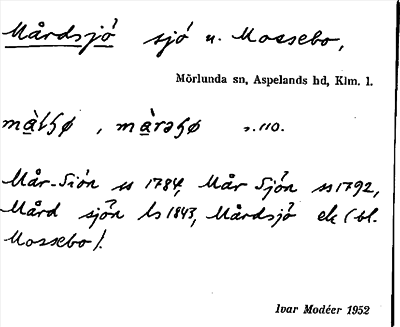 Mårdsjö sjö n. Mossebo,
Mörlunda sn, Aspelands hd, Klm. l.
, s. 110.
Mår-Siön ss 1784, Mår Sjön ss 1792,
Mård sjön ls 1843, Mårdsjö ek (bl.
Mossebo).
Ivar Modéer 1952